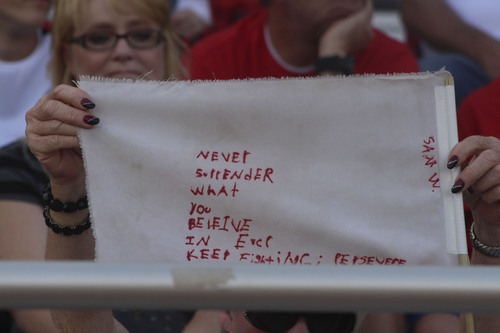 NEVER
SURRENDER
WHAT
YOU
BELEIVE
IN EVER
KEEP FIGHTING; PERSEVERE
SAXX W.